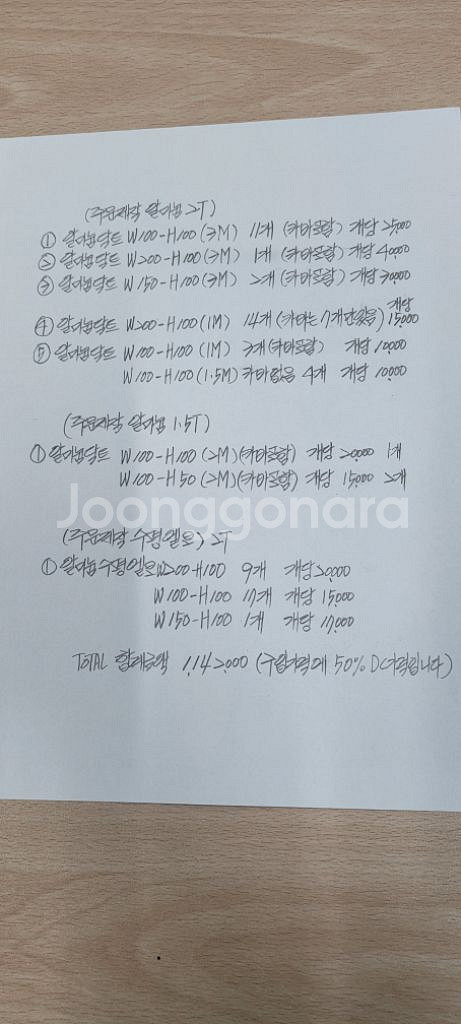 (주문제작 알미늄 2T)
① 알미늄닥트 W100-H100 (3M) 11개 (카바포함) 개당 25000
② 알미늄닥트 W200-H100 (3M) 1개 (카바포함) 개당 40000
③ 알미늄닥트 W150-H100 (3M) 2개 (카바포함) 개당 30000
④ 알미늄닥트 W200-H100 (1M) 14개 (카바는 7개만있음) 개당 15000
⑤ 알미늄닥트 W100-H100 (1M) 3개 (카바포함) 개당 10000
W100-H100 (1.5M) 카바없음 4개 개당 10,000
(주문제작 알미늄 1.5T)
① 알미늄닥트 W100-H100 (2M)(카바포함) 개당 20000 1개
W100-H50 (2M)(카바포함) 개당 15000 2개
Joonggonara
(주문제작 수평엘보) 2T
① 알미늄수평엘보 W200-H100 9개 개당 20,000
W100-H100 17개 개당 15,000
W150-H100 1개 개당 17,000
TOTAL 합계금액 1,142,000 (구입가격에 50% DC가격입니다)